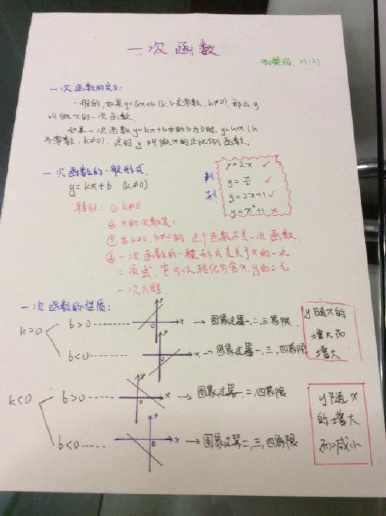 一次函数
一次函数的定义:
一般的,如果y=kx+b(k,b是常数,k≠0)那么y
叫做x的一次函数
如果一次函数y=kx+b中的b为0时,y=kx(k
为常数,k≠0),这时y叫做x的正比例函数.
一次函数的一般形式
y=kx+b (k≠0)
y=2x ✓
y=2x+1 ✓
① k≠0
② x的次数是1
④ 一次函数的一般形式是关于x的一次
二项式,它可以转化为含x,y的二元
一次方程
一次函数的性质:
k>0
b>0 → 图象过第一,二,三象限
b<0 → 图象过第一,三,四象限
y随x的
增大而
增大
k<0
b>0 → 图象过第一,二,四象限
b<0 → 图象过第二,三,四象限
y随x
的增大
而减小